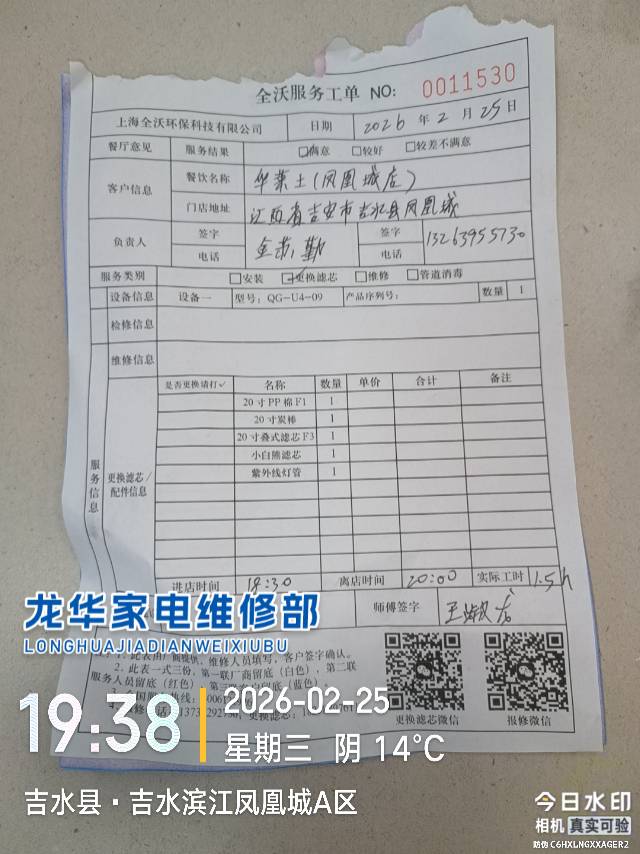 全沃服务工单 NO: 0011530
上海全沃环保科技有限公司 日期 2026年2月25日
餐厅意见 服务结果 ☑满意 □较好 □较差不满意
客户信息 餐饮名称 华莱士(凤凰城店)
门店地址 江西省吉安市吉水县凤凰城
负责人 签字 签字
电话 电话 13263955730
服务类别 □安装 ☑更换滤芯 □维修 □管道消毒
设备信息 设备一 型号: QG-U4-09 产品序列号: 数量 1
检修信息
维修信息
服务信息
更换滤芯/配件信息
是否更换请打✓ 名称 数量 单价 合计 备注
20寸PP棉F1 1
20寸炭棒 1
20寸叠式滤芯F3 1
小白熊滤芯 1
紫外线灯管 1
进店时间 18:30 离店时间 20:00 实际工时 1.5h
师傅签字
龙华家电维修部
LONGHUAJIADIANWEIXIUBU
维修人员填写，客户签字确认。
2. 此表一式三份，第一联厂商留底（白色），第二联
服务人员留底（红色），
留底（蓝色）
更换滤芯微信 报修微信
19:38
2026-02-25
星期三 阴 14°C
吉水县·吉水滨江凤凰城A区
今日水印
相机 真实可验
防伪 C6HXLNGXXAGER2